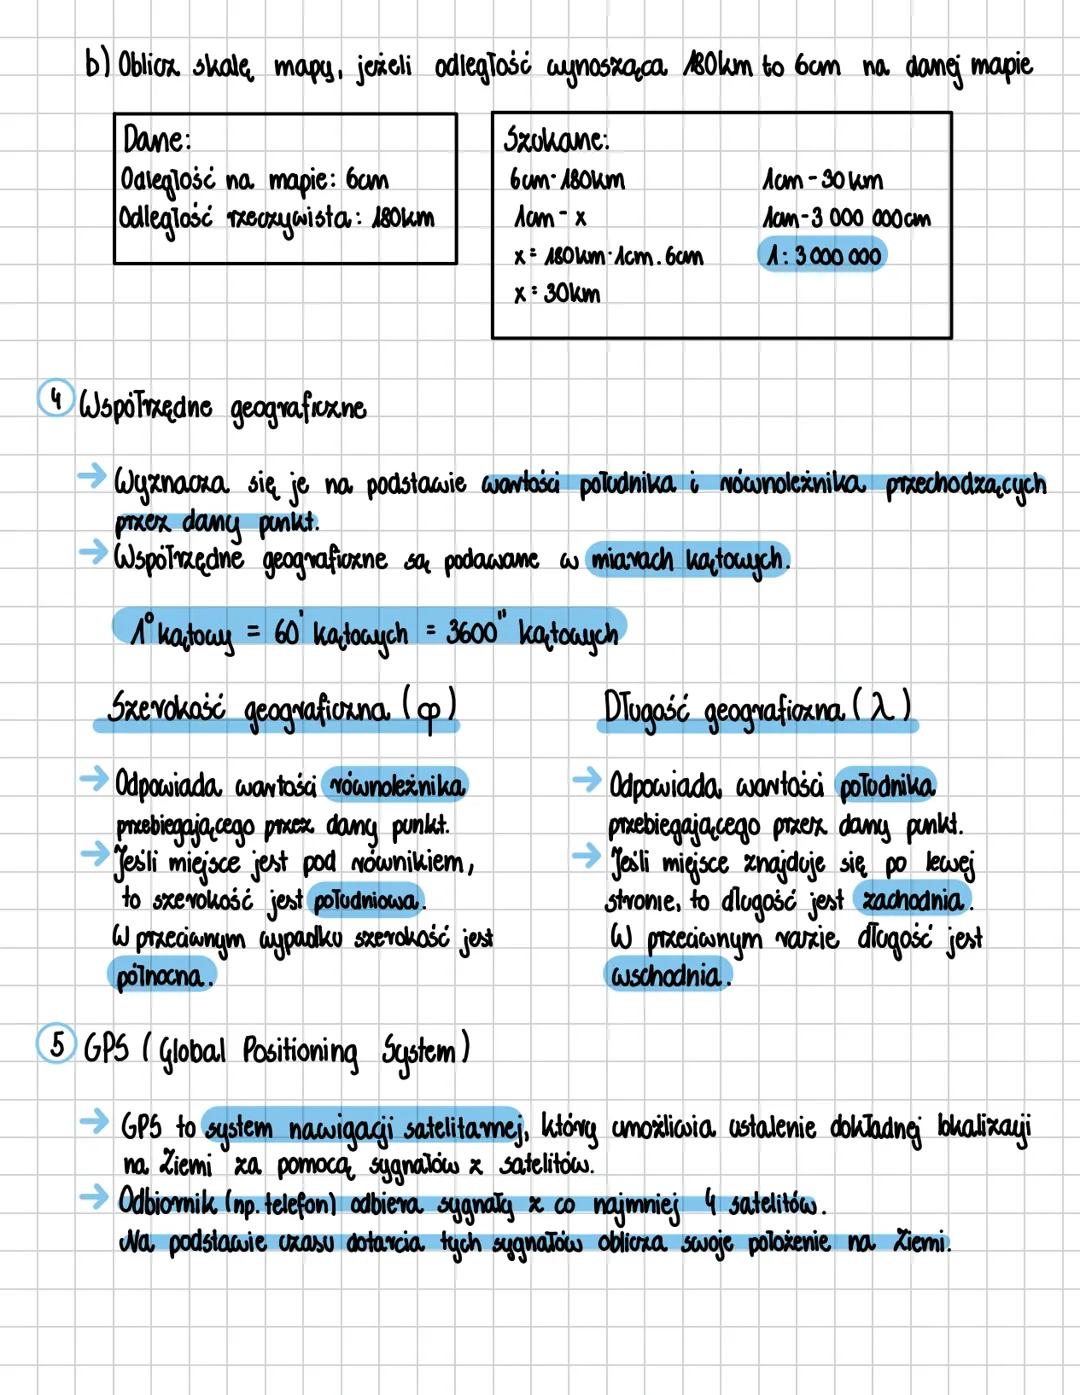 b) Oblicz skalę mapy, jeżeli odległość wynosząca 180km to 6cm na danej mapie
Dane:
Odległość na mapie: 6cm
Odległość rzeczywista: 180km
Szukane:
6cm - 180km
1cm - x
x = 180km · 1cm . 6cm
x = 30km
1cm - 30km
1cm - 3 000 000cm
1 : 3 000 000
4 Współrzędne geograficzne
→ Wyznacza się je na podstawie wartości południka i równoleżnika przechodzących
przez dany punkt.
→ Współrzędne geograficzne są podawane w miarach kątowych.
1° kątowy = 60' kątowych = 3600" kątowych
Szerokość geograficzna (φ)
→ Odpowiada wartości równoleżnika
przebiegającego przez dany punkt.
→ Jeśli miejsce jest pod równikiem,
to szerokość jest południowa.
W przeciwnym wypadku szerokość jest
północna.
Długość geograficzna (λ)
→ Odpowiada wartości południka
przebiegającego przez dany punkt.
→ Jeśli miejsce znajduje się po lewej
stronie, to długość jest zachodnia.
W przeciwnym razie długość jest
wschodnia.
5 GPS (Global Positioning System)
→ GPS to system nawigacji satelitarnej, który umożliwia ustalenie dokładnej lokalizacji
na Ziemi za pomocą sygnałów z satelitów.
→ Odbiornik (np. telefon) odbiera sygnały z co najmniej 4 satelitów.
Na podstawie czasu dotarcia tych sygnałów oblicza swoje położenie na Ziemi.